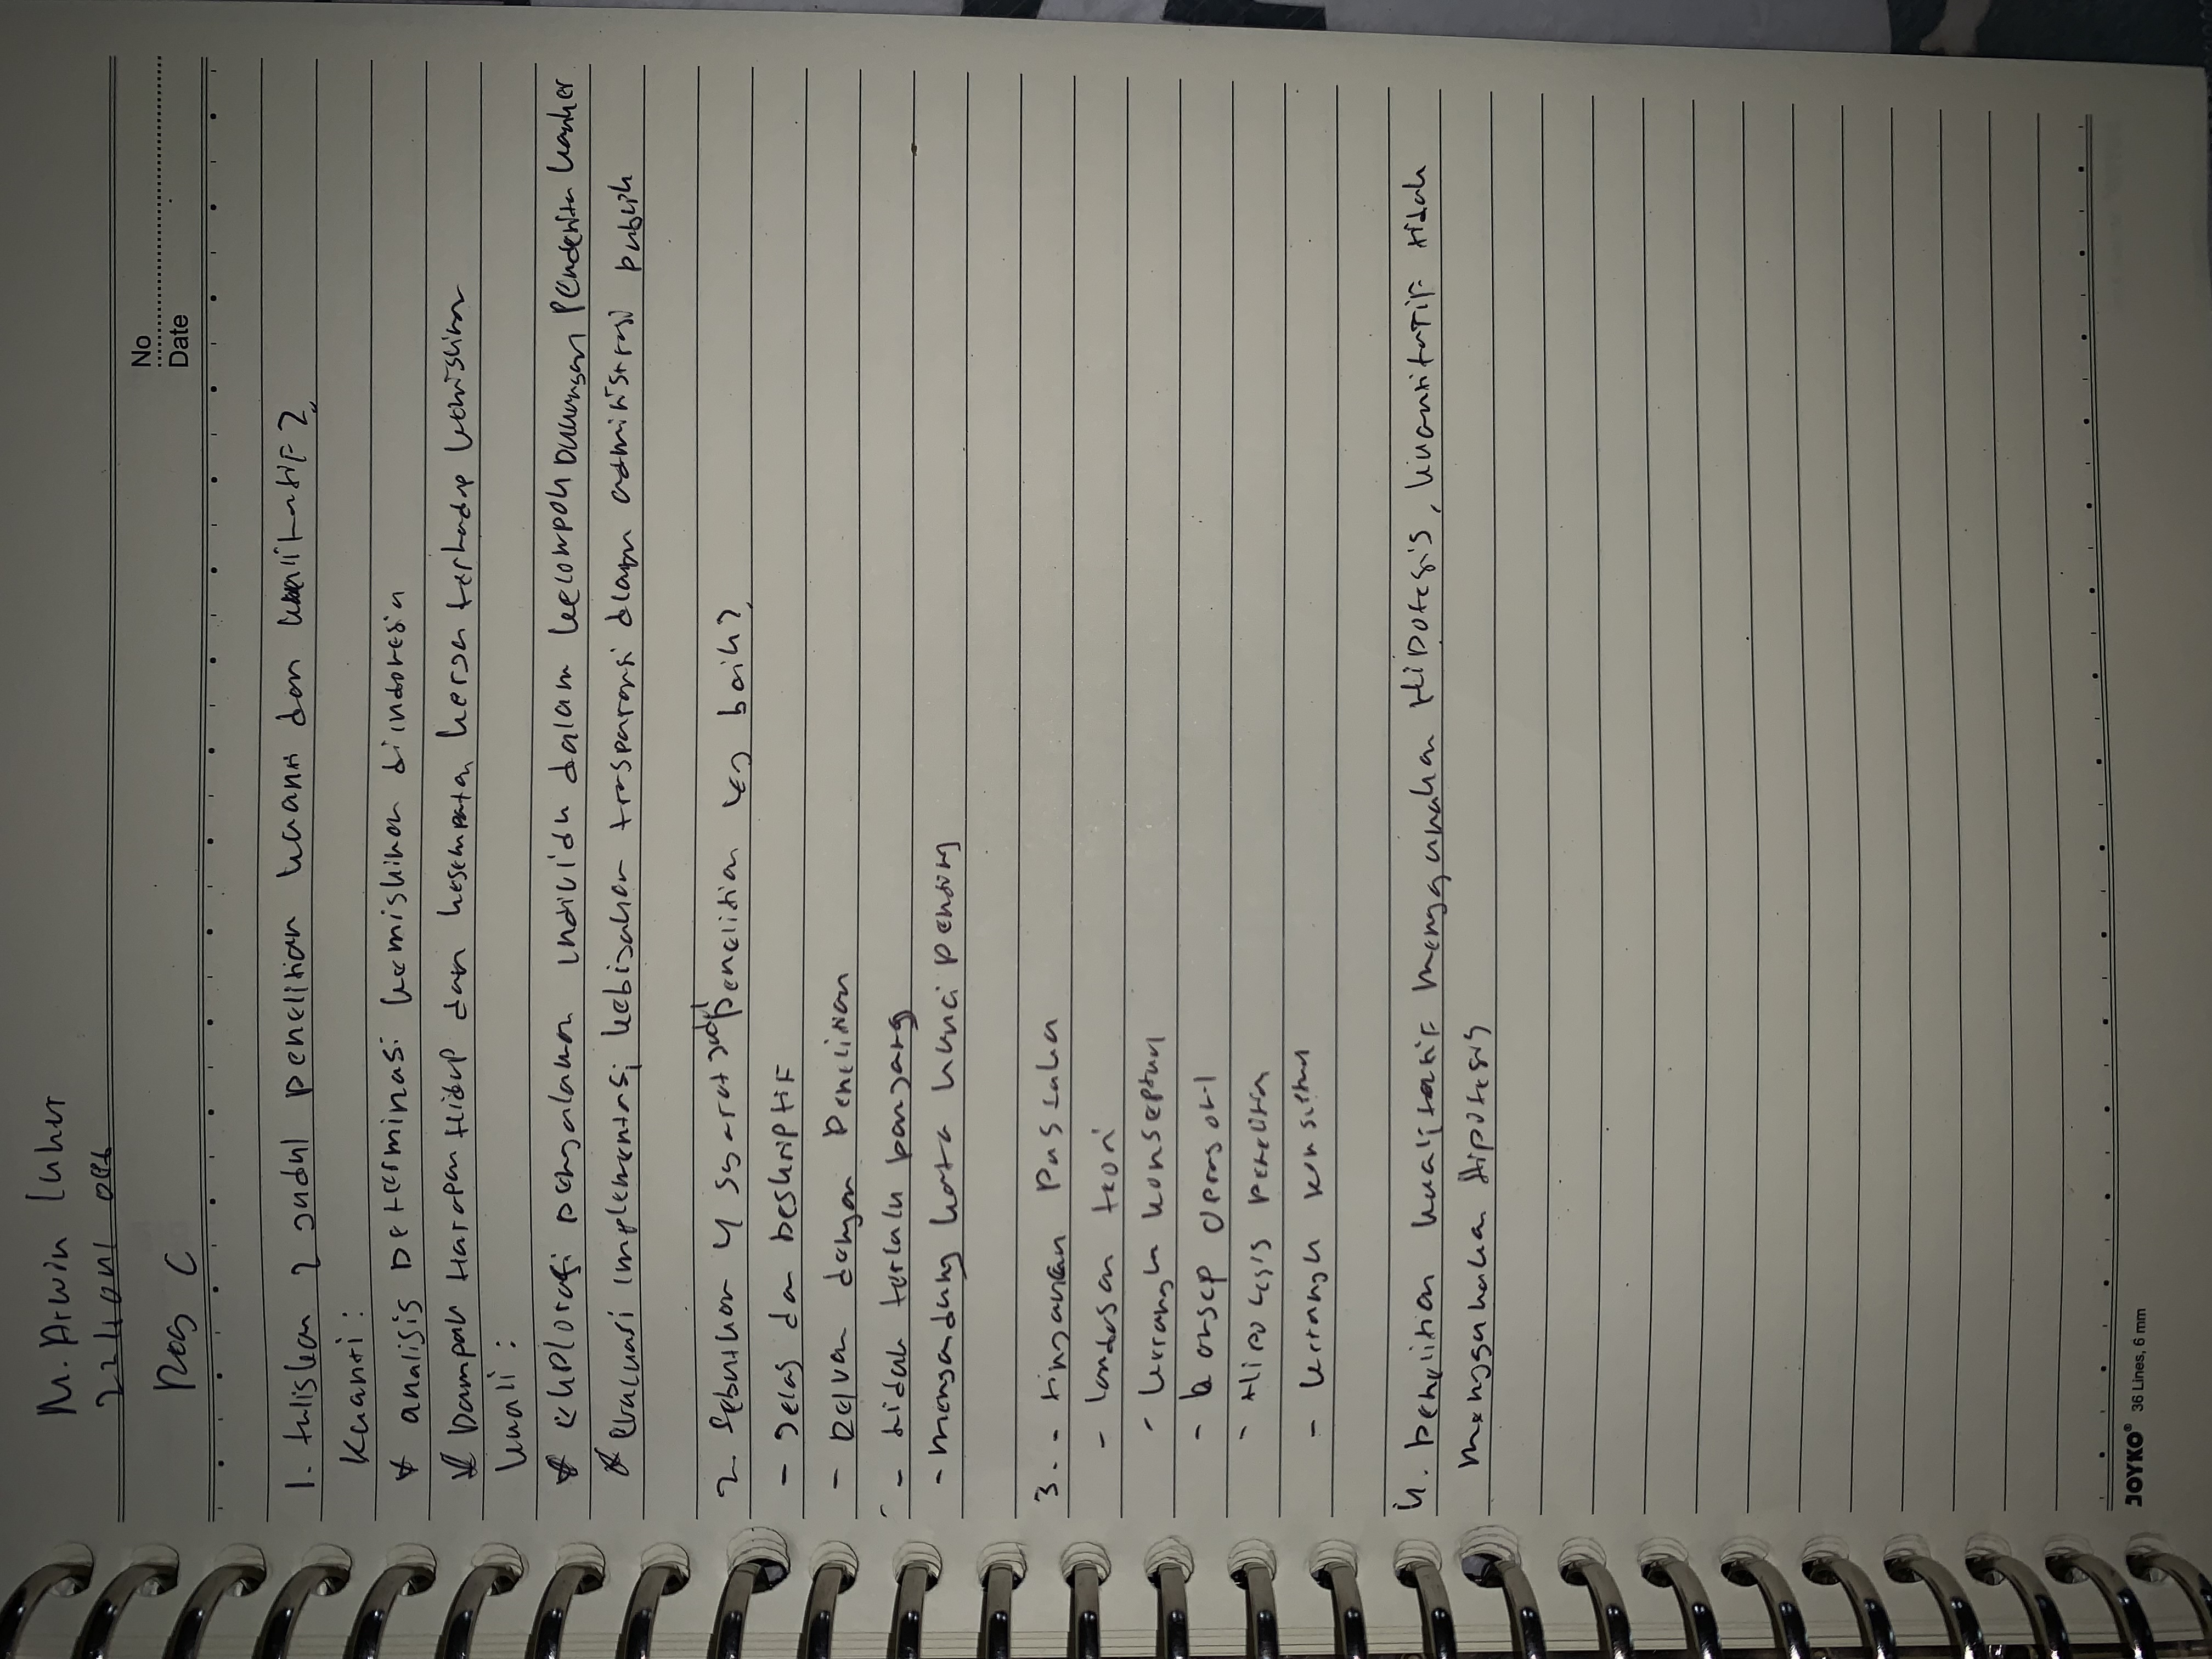 M. Arwin Luhur
Reg C
No
Date
1. tuliskan 2 judul penelitian kuanti dan kualitatif?
Kuanti:
* analisis Determinasi kemiskinan diindonesia
* Dampak Harapan Hidup dan kesempatan kerja terhadap kemiskinan
kuali:
* eksplorasi pengalaman individu dalam kelompok Dukungan Penderita kanker
* Evaluasi implementasi kebijakan transparansi dalam administrasi publik
2. Sebutkan 4 syarat judul penelitian yg baik?
- Jelas dan deskriptif
- relvan dengan Penelitian
- tidak terlalu panjang
- mengandung kata kunci penting
3. - tinjauan Pustaka
- landasan teori
- kerangka konseptual
- konsep oprasonl
- Hipotesis Penelitian
- kerangka
4. penelitian kualitatif menggunakan Hipotesis, kuantitatif tidak
menggunakan Hipotesis
JOYKO® 36 Lines, 6 mm